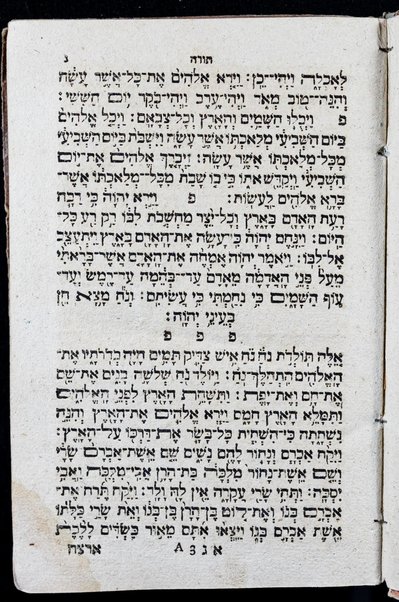 תורה ג
לְאָכְלָה וַיְהִי־כֵן: וַיַּרְא אֱלֹהִים אֶת־כָּל־אֲשֶׁר עָשָׂה
וְהִנֵּה־טוֹב מְאֹד וַיְהִי־עֶרֶב וַיְהִי־בֹקֶר יוֹם הַשִּׁשִּׁי:
פ וַיְכֻלּוּ הַשָּׁמַיִם וְהָאָרֶץ וְכָל־צְבָאָם: וַיְכַל אֱלֹהִים
בַּיּוֹם הַשְּׁבִיעִי מְלַאכְתּוֹ אֲשֶׁר עָשָׂה וַיִּשְׁבֹּת בַּיּוֹם הַשְּׁבִיעִי
מִכָּל־מְלַאכְתּוֹ אֲשֶׁר עָשָׂה: וַיְבָרֶךְ אֱלֹהִים אֶת־יוֹם
הַשְּׁבִיעִי וַיְקַדֵּשׁ אֹתוֹ כִּי בוֹ שָׁבַת מִכָּל־מְלַאכְתּוֹ אֲשֶׁר־
בָּרָא אֱלֹהִים לַעֲשׂוֹת: פ וַיַּרְא יְהוָה כִּי רַבָּה
רָעַת הָאָדָם בָּאָרֶץ וְכָל־יֵצֶר מַחְשְׁבֹת לִבּוֹ רַק רַע כָּל־
הַיּוֹם: וַיִּנָּחֶם יְהוָה כִּי־עָשָׂה אֶת־הָאָדָם בָּאָרֶץ וַיִּתְעַצֵּב
אֶל־לִבּוֹ: וַיֹּאמֶר יְהוָה אֶמְחֶה אֶת־הָאָדָם אֲשֶׁר־בָּרָאתִי
מֵעַל פְּנֵי הָאֲדָמָה מֵאָדָם עַד־בְּהֵמָה עַד־רֶמֶשׂ וְעַד־
עוֹף הַשָּׁמָיִם כִּי נִחַמְתִּי כִּי עֲשִׂיתִם: וְנֹחַ מָצָא חֵן
בְּעֵינֵי יְהוָה:
פ פ פ
אֵלֶּה תּוֹלְדֹת נֹחַ נֹחַ אִישׁ צַדִּיק תָּמִים הָיָה בְּדֹרֹתָיו אֶת־
הָאֱלֹהִים הִתְהַלֶּךְ־נֹחַ: וַיּוֹלֶד נֹחַ שְׁלֹשָׁה בָנִים אֶת־שֵׁם
אֶת־חָם וְאֶת־יָפֶת: וַתִּשָּׁחֵת הָאָרֶץ לִפְנֵי הָאֱלֹהִים
וַתִּמָּלֵא הָאָרֶץ חָמָס: וַיַּרְא אֱלֹהִים אֶת־הָאָרֶץ וְהִנֵּה
נִשְׁחָתָה כִּי־הִשְׁחִית כָּל־בָּשָׂר אֶת־דַּרְכּוֹ עַל־הָאָרֶץ:
וַיִּקַּח אַבְרָם וְנָחוֹר לָהֶם נָשִׁים שֵׁם אֵשֶׁת־אַבְרָם שָׂרָי
וְשֵׁם אֵשֶׁת־נָחוֹר מִלְכָּה בַּת־הָרָן אֲבִי־מִלְכָּה וַאֲבִי
יִסְכָּה: וַתְּהִי שָׂרַי עֲקָרָה אֵין לָהּ וָלָד: וַיִּקַּח תֶּרַח אֶת־
אַבְרָם בְּנוֹ וְאֶת־לוֹט בֶּן־הָרָן בֶּן־בְּנוֹ וְאֵת שָׂרַי כַּלָּתוֹ
אֵשֶׁת אַבְרָם בְּנוֹ וַיֵּצְאוּ אִתָּם מֵאוּר כַּשְׂדִּים לָלֶכֶת
א נ 3 A ארצה